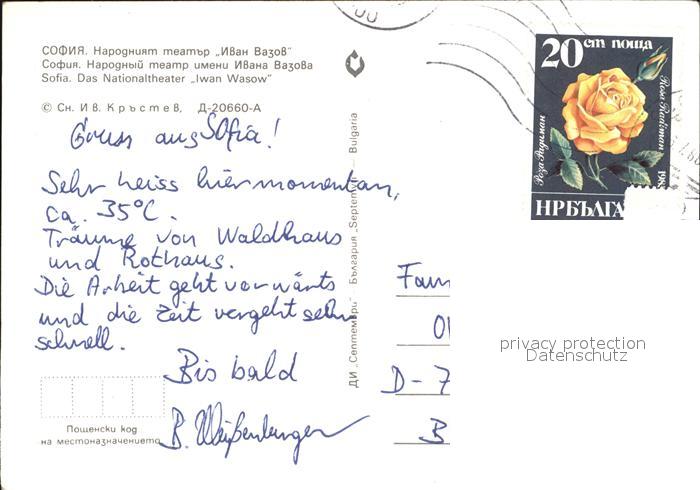 СОФИЯ. Народният театър „Иван Вазов"
София. Народный театр имени Ивана Вазова
Sofia. Das Nationaltheater „Iwan Wasow"
© Сн. Ив. Кръстев, Д-20660-А
Gruss aus Sofia!
Sehr heiss hier momentan,
ca. 35°C.
Träume von Waldhaus
und Rothaus.
Die Arbeit geht vorwärts
und die Zeit vergeht sehr
schnell.
Bis bald
B. Weißenberger
Пощенски код
на местоназначението
ДИ „Септември" България „Septemvri" Bulgaria
20 ст поща
Роза Радиман
Rosa Radiman
198
НР БЪЛГА
Fam
D-7
B
privacy protection
Datenschutz